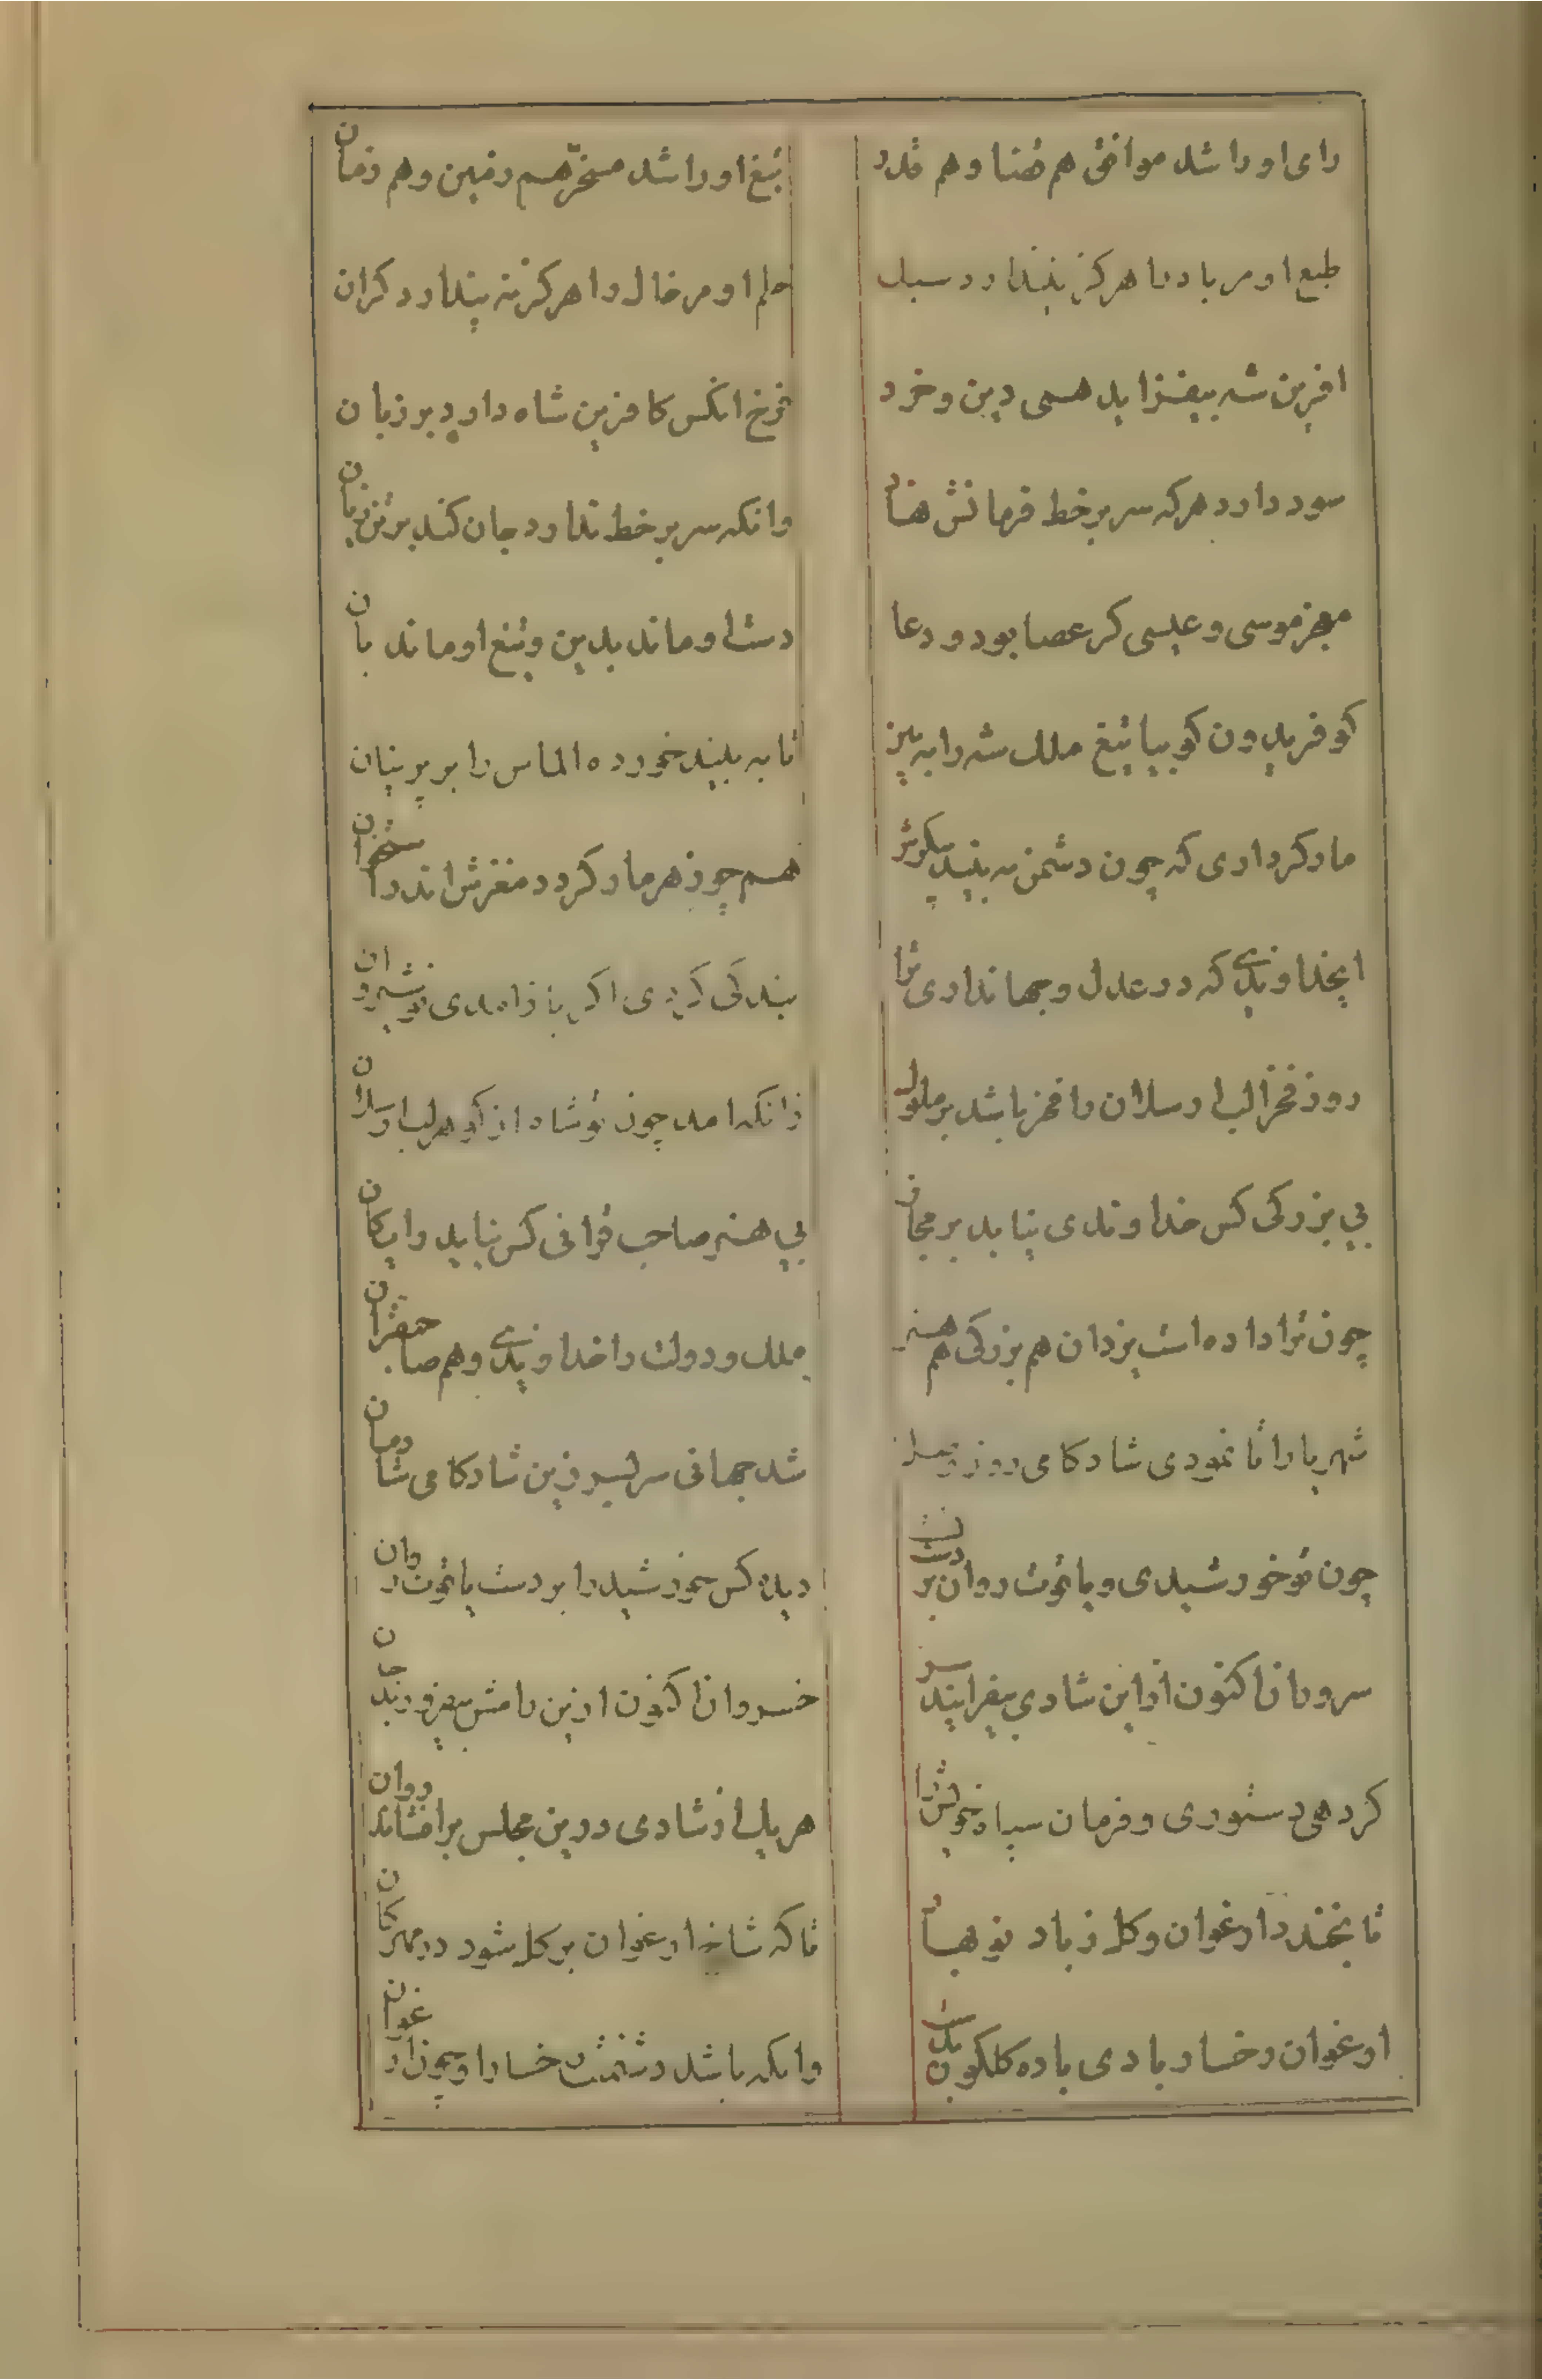 رای او را شد موافق هم قضا و هم قدر
تیغ او را شد مسخّر هم زمین و هم زمان
طبع او مر باد را هرگز نپندارد سبک
حلم او مر خاک را هرگز نه پندارد کران
افرین شه بیفزاید همی دین و خرد
فرخ انکس کافرین شاه دارد بر زبان
سود دارد هرکه سر بر خط فرمانش نهاد
وانکه سر بر خط ندارد جان کند بر تن زیان
معجز موسی و عیسی کر عصا بود و دعا
دست او ماند بدین و تیغ او ماند بان
کو فریدون کو بیا تیغ ملک شه را به بین
تا به بیند خورده الماس را بر پرنیان
مار کرداری که چون دشمن به بیند پیکرش
هم چو زهر مار کردد مغزش اندر استخوان
ایخداوندی که در عدل و جهانداری ترا
بندکی کردی اکر باز امدی نوشیروان
روز فخر الب ارسلان را فخر باشد بر ملوک
زانکه امد چون تو شاه از کوهر الب ارسلان
بی بزرکی کس خداوندی نیابد بر مجاز
بی هنر صاحب قرانی کس نیابد رایکان
چون ترا داده است یزدان هم بزرکی هم هنر
ملک و دولت را خداوندی و هم صاحبقران
شهریارا تا نمودی شادکامی روز
شد جهانی سر بسر زین شادکامی شادمان
چون تو خورشیدی و یاقوت روان بر دستت
دیده کس خورشید را بر دست یاقوت روان
سرورانرا کنون از این شادی بیفرایند سر
خسروانرا کنون ازین رامش بیفروزند جان
کر دهی دستوری و فرمان سپاه خویش را
هر یک از شادی درین مجلس برافشاند روان
تا بخندد ارغوان و کل ز باد نو بهار
تا که شاخ ارغوان بر کل شود در مهرکان
ارغوان رخسار بادی باده کلکون بدست
وانکه باشد دشمنت رخسار او چون ارغوان